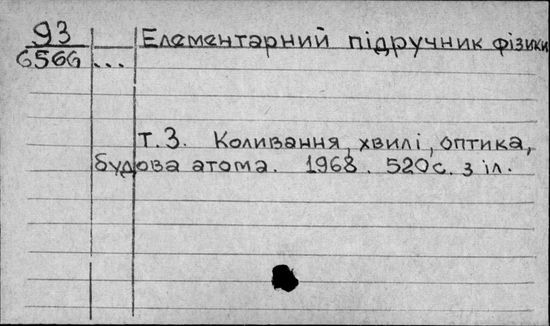 93 Елементарний підручник фізики
6566 ...
т. 3. Коливання, хвилі, оптика,
будова атома. 1968. 520 с. з іл.